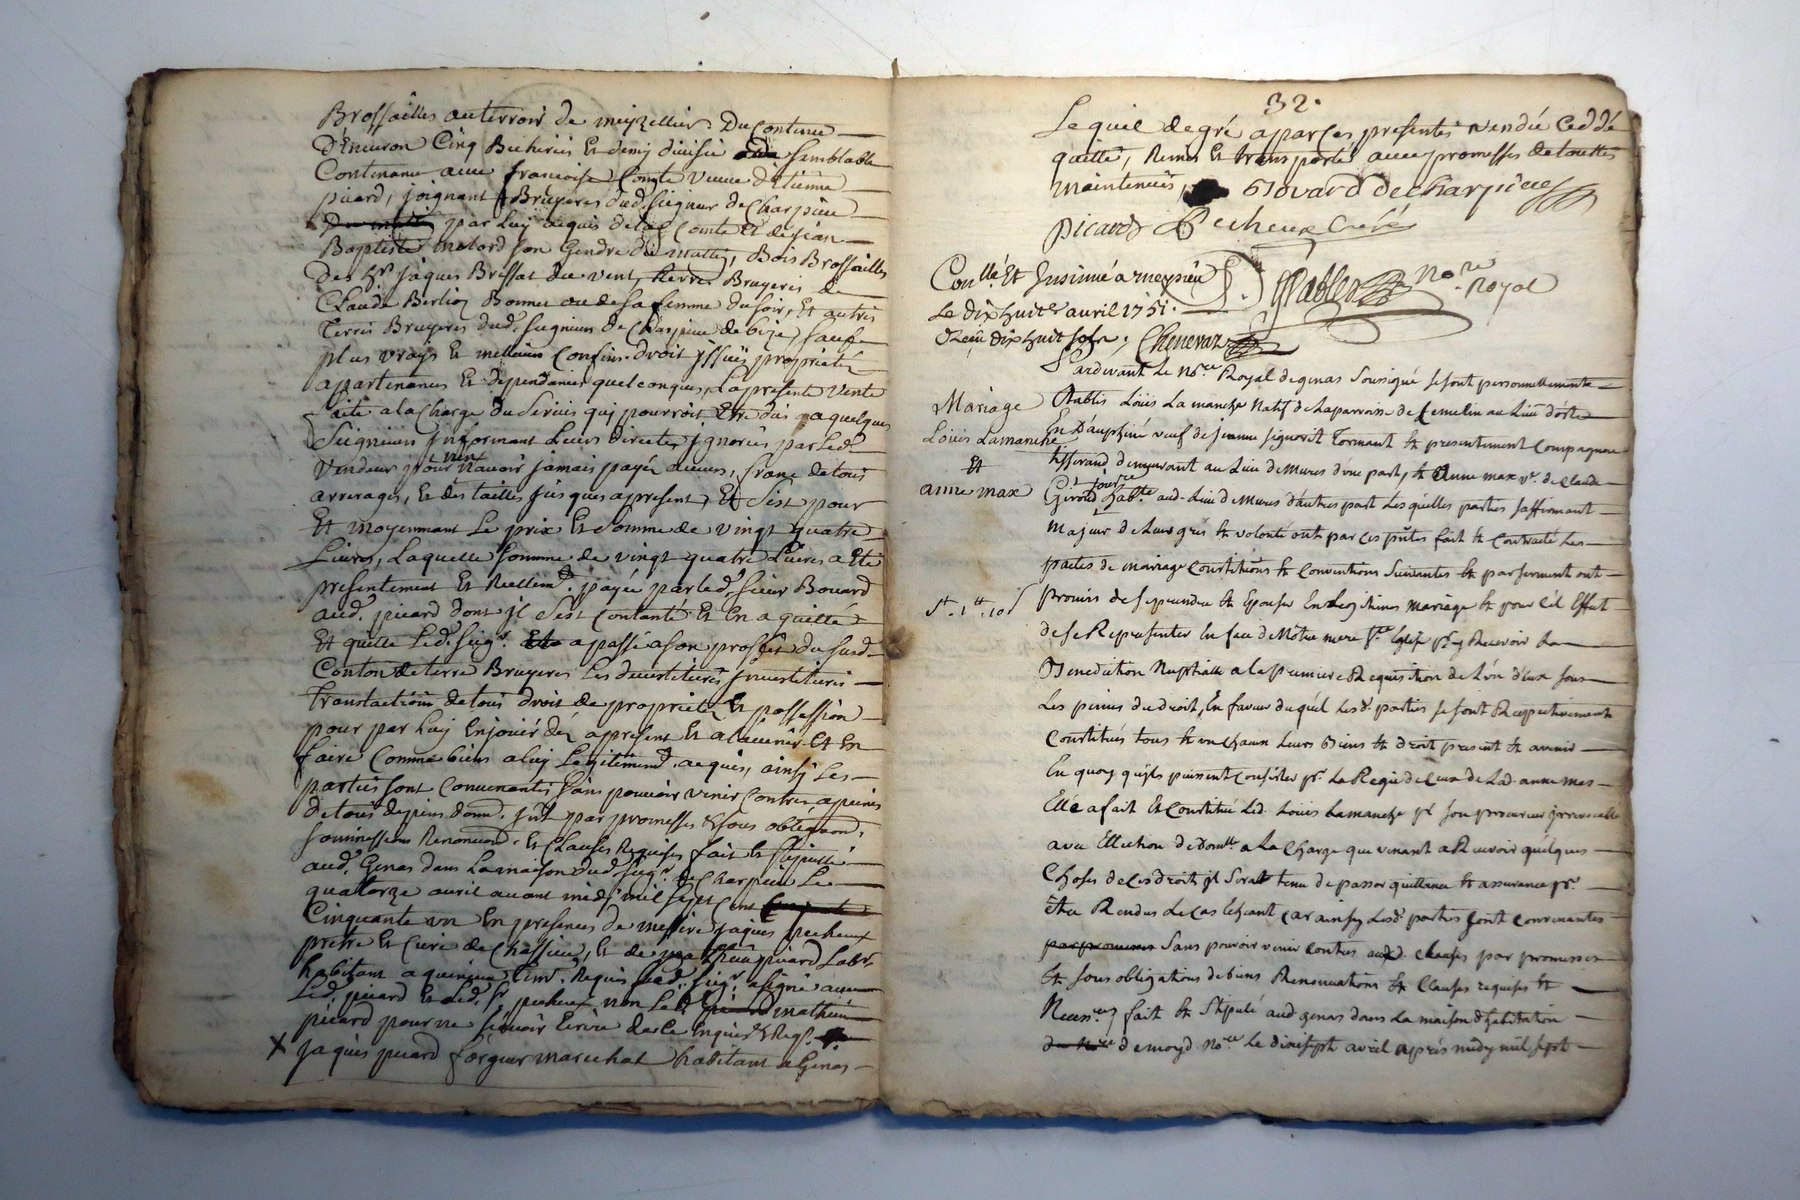 Brossailles au terroir de meyzellier. Du Contenu
D'Environ Cinq Bicherées Et demy divisée semblable
Contenance avec francoise Comte veuve d'Etienne
picard, joignant Bruyeres dud. Seigneur de Charpieu
par Luy acquis de lad. Comte Et de jean
Baptiste son Gendre du matin, Bois Brossailles
Des jaques Brissat du vent, terres Bruyeres de
Claude Berlioz ou de sa femme du soir, Et autres
Terres Bruyeres dud. Seigneur de Charpieu de bize, sauf
plus vrays Et meilleurs Confins. droit jssues proprietés
apartenances Et dependances quelconques, La presente vente
faite a la Charge du Servis quj pourroit Etre dus a quelques
Seigneurs jnformant Leurs directes jgnorées par Led.
Vendeur pour n'en avoir jamais payé aucun, franc de tous
arrerages, Et des tailles jusques a present, Et C'est pour
Et moyennant Le prix Et Somme de vingt quatre
Livres, Laquelle Somme de vingt quatre Livres a Eté
presentement Et reellemt. payée par led. sieur Bovard
aud. picard dont jl s'est Contanté Et En a quitté
Et quitte Led. Seigr. a passé a son proffit du susd.
Canton de terre Bruyeres Les devestitures jnvestitures
translation de tous droit de proprieté Et possession
pour par Luy En jouir dés a present Et a l'avenir Et En
faire Comme biens a luy Legitimemt. acquis, ainsy Les
parties sont Convenantes Sans pouvoir venir Contre a peines
De tous depens domm. jnt. par promesses sous obligaons.
soumissions Renonciaons. Et Clauses Requises fait Et Stipullé
aud. Genas dans La maison dud. Seigr. de Charpieu Le
quattorze avril avant midy mil sept Cent
Cinquante un En presences de messire jaques pecheux
prêtre Et Curé de Chassieu, Et de picard Labr.
habitant a Requis Led. Seigr. a signé avec
Led. picard Et Led. Sr. pecheux non Led. mathieu
picard pour ne sçavoir Ecrire de ce Enquis & Reqs.
X jaques picard forgeur marechal habitant a Genas
32.
Lequel de gré a par Ces presentes vendu Ceddé
quitté, Remis Et transporté avec promesses de touttes
maintenues,
Bovard de Charpieu
Picard Pecheux Curé
Conllé. Et Insinué a meyzieu
Le dix huite avril 1751.
Reçu dix huit sols, Chenevaz
Nore. Royal
Pardevant Le Nore. Royal de genas Soussigné se sont personnellemente
Etablis Loüis Lamanche Natif de La parroisse de
En Dauphiné veuf de jeanne Tormant & presentement Compagnon
demeurant au Lieu de Mures d'une part, & Anne max ve. de Claude
Girard habte. aud. Lieu de Mures d'autres part Lesquelles parties s'affirmant
Majeur de Leur grés & volonté ont par ces pntes fait & Contracté Les
pactes de mariage Constitutions & Conventions Suivantes & par serment ont
promis de se prendre & Epouser En legitimes mariage & pour Cet Effect
de se Representer En face de Nôtre mere Ste Eglise pr. y Recevoir La
Benediction Nuptialle a la premiere Requisition de L'un d'Eux sous
Les peines du droit, En faveur duquel Lesd. parties se sont Respectivement
Constitués tous & un chacun Leurs Biens & droit present & avenir
En quoy qu'jls puissent Consister pr. La Regie de Ceux de Lad. anne max
Elle a fait Et Constitué Led. Loüis Lamanche pr. Son procureur jrrevocable
avec Ellection de domlle a La Charge que venant a Recevoir quelques
Choses de Ces droits jl Sorat tenu de passer quittance & assurance pr.
être Rendus Le Cas Echeant Car ainsy Lesd. parties sont Convenantes
Sans pouvoir venir Contres Clauses par promesses
& sous obligations de biens Renonciations & Clauses requises &
Necesres fait & Stipulé aud genas dans La maison d'habitation
de moyd Nore. Le dixsept avril après midy mil sept
Mariage
Loüis Lamanche
Et
anne max